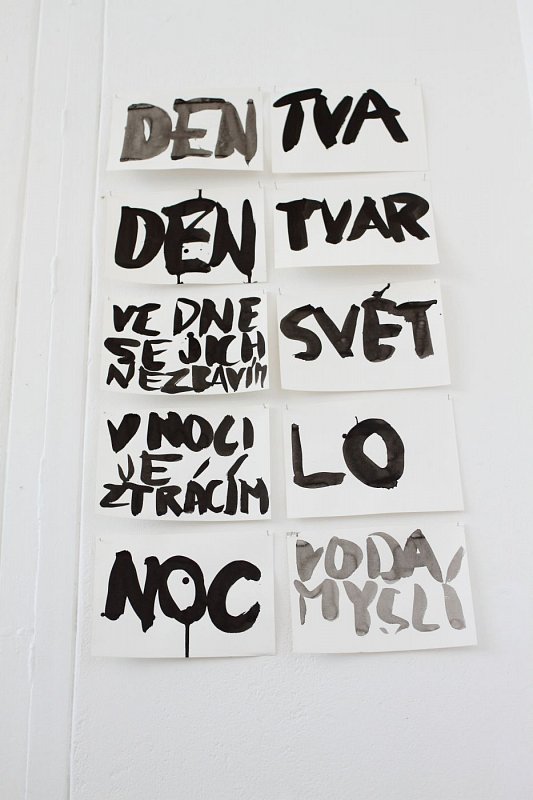 DEN
DEN
VE DNE
SE JICH
NEZBAVÍM
V NOCI
JE
ZTRÁCÍM
NOC
TVÁ
TVAR
SVĚT
LO
VODA
MYSLÍ